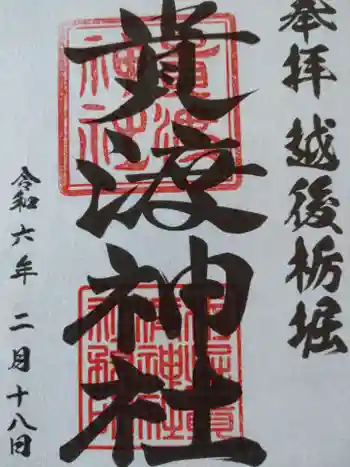 奉拝 越後栃堀
貴渡神社
令和六年 二月十八日
貴渡神社